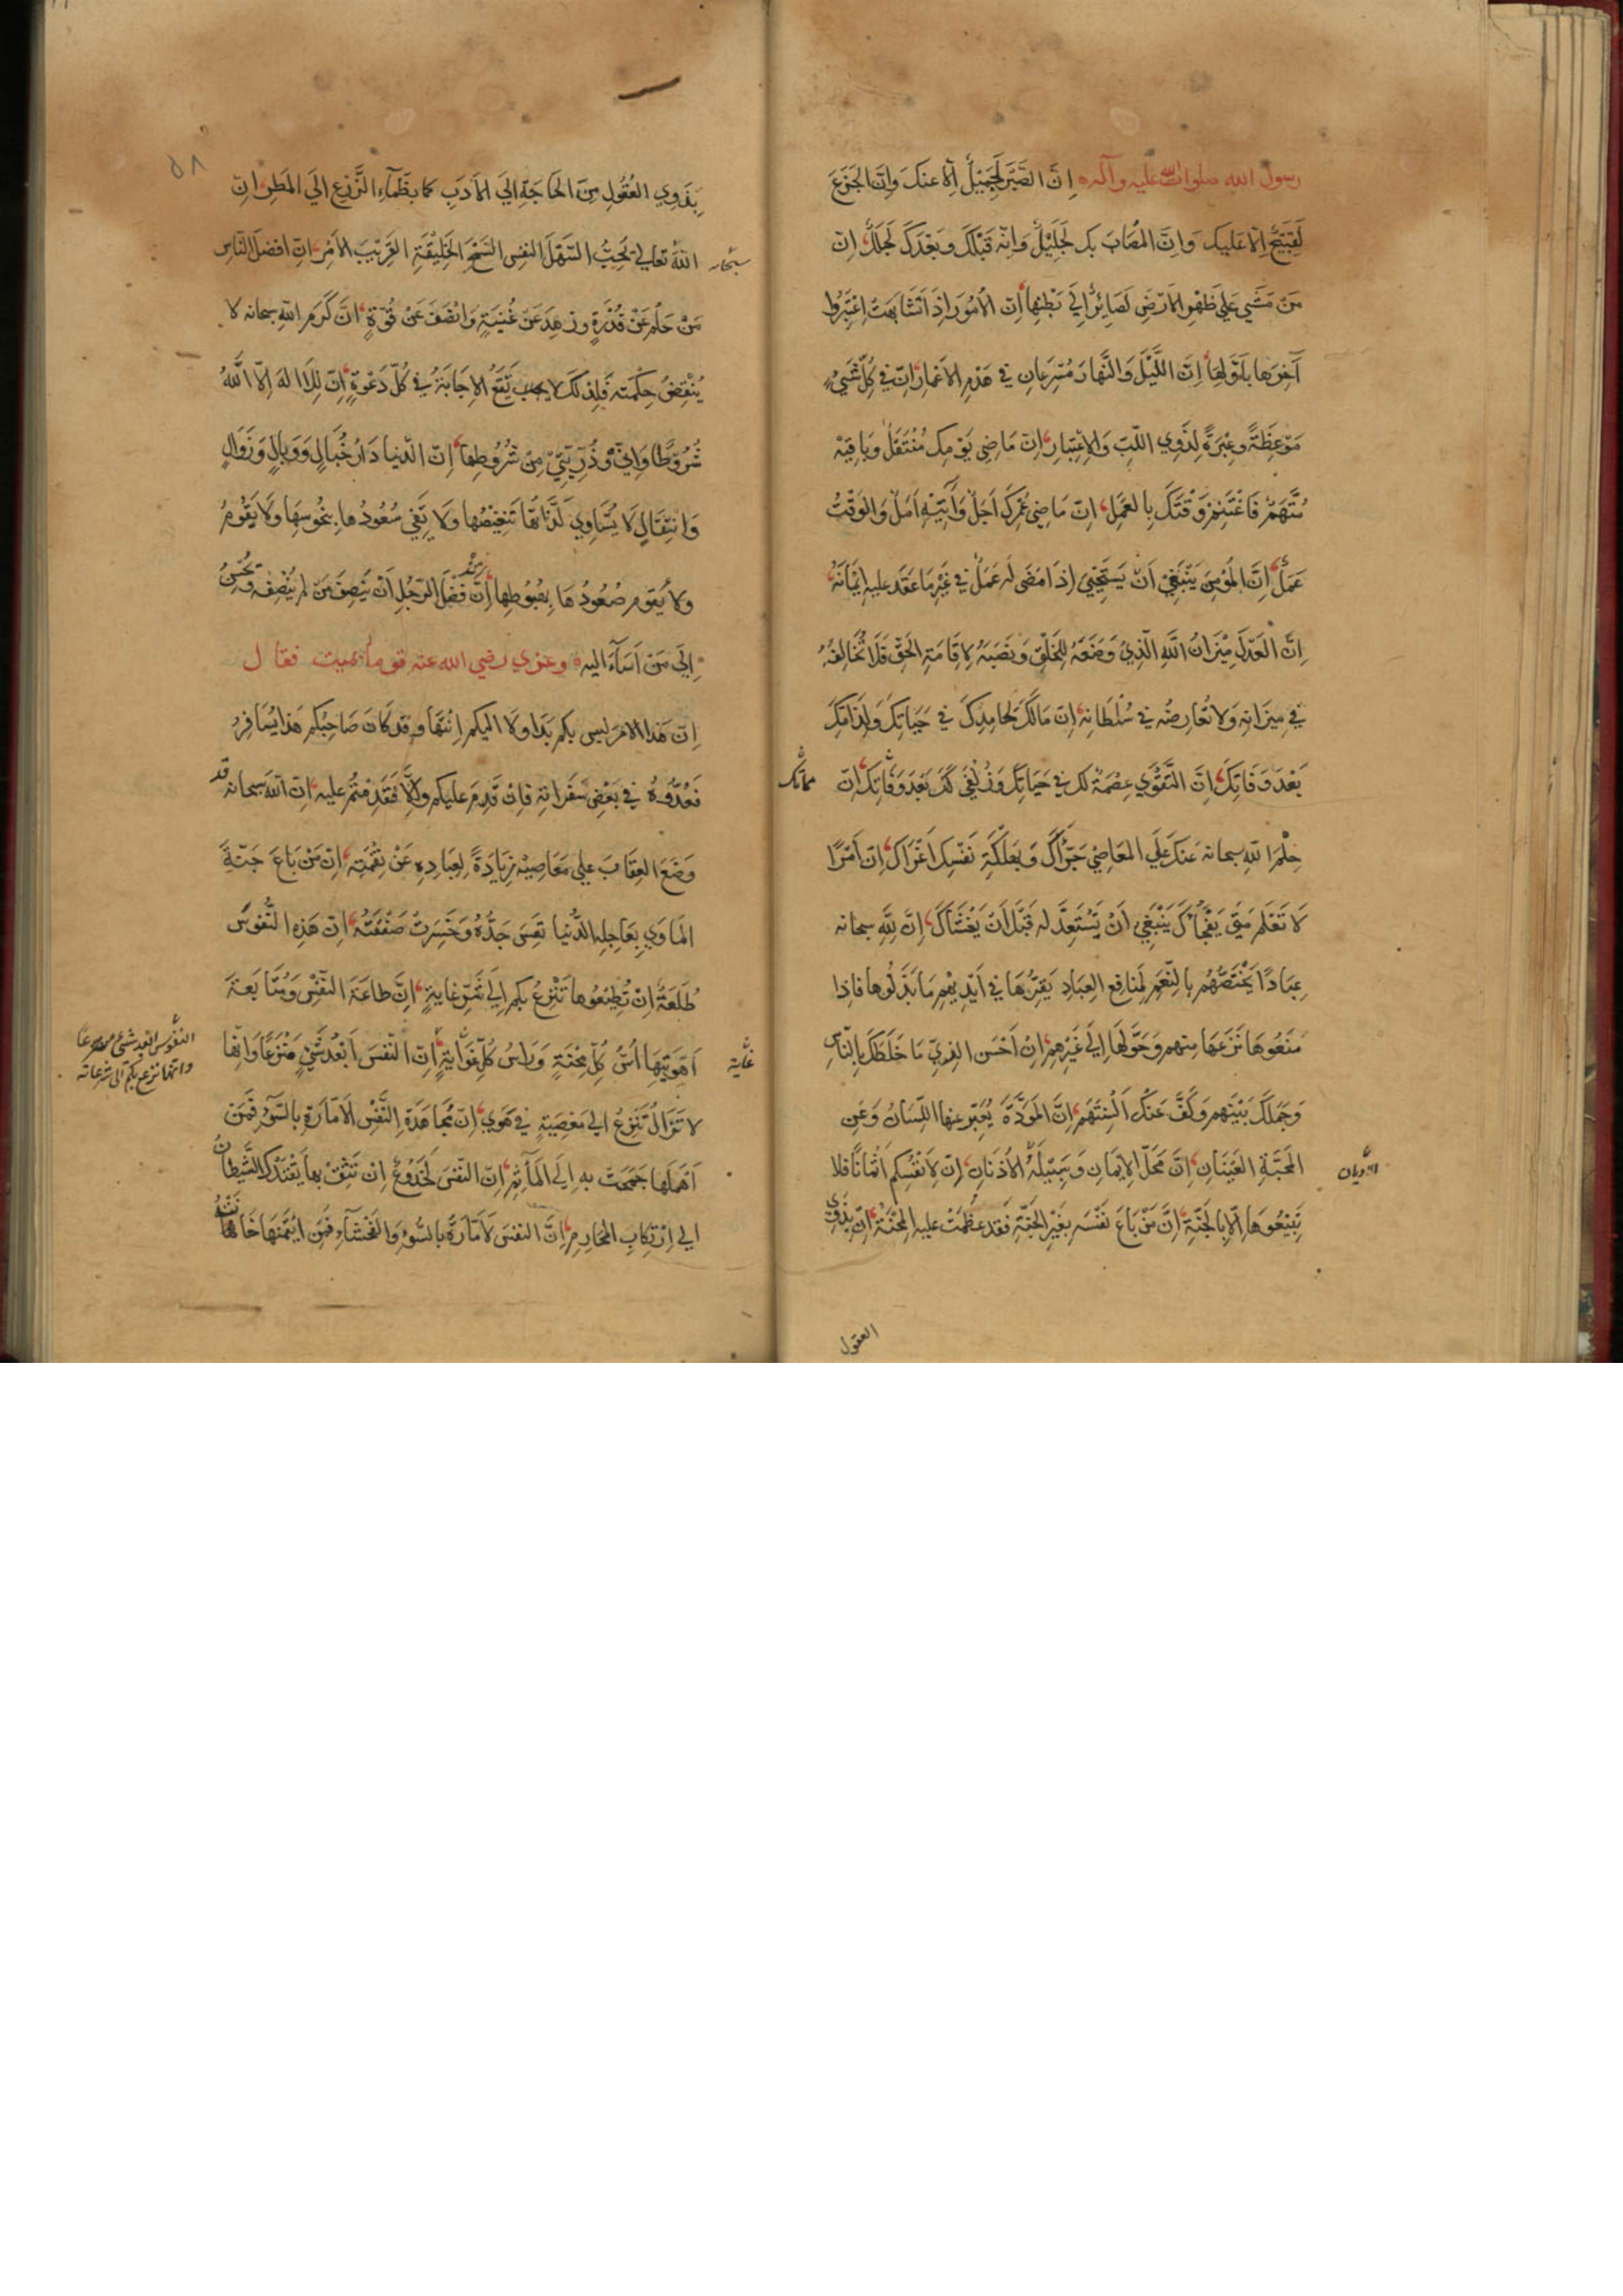 رسول الله صلوات الله عليه وآله اِنَّ الصَّبْرَ لَجَمِيْلٌ اِلّا عنكَ وَاِنَّ الجَزَعَ
لَقَبِيْحٌ اِلّا عَلَيك وَاِنَّ المُصَابَ بك لَجَلِيْلٌ وَاِنّه قَبْلَكَ وبَعْدَكَ لَجَلَلٌ اِنّ
مَنْ مَشَي عَلَي ظَهْرِ الاَرْضِ لَصَائِرٌ اِلَي بَطْنِهَا اِنّ الاُمُوْرَ اِذَا تَشَابَهَتْ اِعْتَبَرُوا
آخِرَها بِاَوَّلِهَا اِنَّ اللَّيْلَ وَالنَّهارَ مُسْرِعَانِ في هَدْمِ الاَعْمارِ اِنّ في كُلِّ شَيْءٍ
مَوْعِظَةً وعِبْرَةً لِذَوِي اللُّبِّ وَالاِعْتِبَارِ اِنّ مَاضِي يَوْمِكَ مُنْتَقِلٌ وبَاقِيْه
مُتَّهَمٌ فَاغْتَنِمْ وَقْتَكَ بِالعَمَلِ اِنّ مَاضِي عُمْرِكَ اَجَلٌ وَآتِيْهِ اَمَلٌ وَالوَقْتُ
عَمَلٌ اِنَّ المُؤْمِنَ يَنْبَغِيْ اَنْ يَسْتَحْيِيَ اِذَا مَضَى لَه عَمَلٌ في غَيْرِ مَا عَقَدَ عليه اِيْمَانَهُ
اِنَّ العَدْلَ مِيْزَانُ اللهِ الَّذِيْ وَضَعَهُ لِلخَلْقِ وَنَصَبَهُ لِاِقَامَةِ الحَقِّ فَلَا تُخَالِفْهُ
فِي مِيزَانِهِ وَلا تُعَارِضْه في سُلْطَانِه اِنّ مَالَكَ لِحَامِدِكَ في حَيَاتِكَ وَلِذَامِّكَ
بَعْدَ وَفَاتِكَ اِنَّ التَّقْوَي عِصْمَةٌ لك في حَيَاتِكَ وَزُلْفَي لَكَ بَعْدَ وَفَاتِكَ اِنّ
مماتك
حِلْمَ اللهِ سبحانه عَنكَ عَلَي المَعَاصِيْ جَرَّاكَ وَبِهَلَكَةِ نَفْسِك اَغْرَاكَ اِنّ اَمْرًا
لَا تَعْلَم مَتَي يَفْجَأُكَ يَنْبَغِيْ اَنْ تَسْتَعِدَّ له قَبْلَ اَنْ يَغْشَاكَ اِنَّ لِلّهِ سبحانه
عِبَادًا يَخْتَصُّهُم بِالنِّعَمِ لِمَنَافِعِ العِبَادِ يُقِرُّهَا في اَيْدِيْهِم مَا بَذَلُوها فاِذا
مَنَعُوهَا نَزَعَها منهم وَحَوَّلَهَا اِلَي غَيْرِهِم اِنّ اَحْسَنَ الزِيِّ مَا خَلَطَكَ بِالنَّاسِ
وَجَمَّلَكَ بَيْنَهم وَكَفَّ عَنكَ اَلْسِنَتَهُم اِنَّ المَوَدَّةَ يُعَبِّرُ عنها اللِّسَانُ وَعَنِ
المَحَبَّةِ العَيْنَانِ اِنَّ مَحَلَّ الاِيْمَانِ الجَنَانُ وَسَبِيْلَهُ الاُذُنَانِ اِنّ لِاَنْفُسِكم اَثْمَانًا فلا
تَبِيْعُوهَا اِلّا بِالجَنَّةِ اِنَّ مَنْ بَاعَ نَفْسَه بِغَيْرِ الجَنَّةِ فَقَد عَظُمَتْ عليه المِحْنَةُ اِنّ بِذَوِي
العقول
بِذَوِي العُقُولِ مِنَ الحَاجَةِ اِلَي الاَدَبِ كَمَا بِظَمَاءِ الزَّرْعِ اِلَي المَطَرِ اِنّ
اللهَ تعالي يُحِبُّ السَّهْلَ النَفْسِ السَّمْحَ الخَلِيْقَةِ القَرِيْبَ الاَمْرِ اِنّ افضلَ النَّاسِ
سبحانه
مَنْ حَلُمَ عَنْ قُدْرَةٍ وَزَهِدَ عَنْ غُنْيَةٍ وَاَنْصَفَ عَنْ قُوَّةٍ اِنَّ كَرَمَ اللهِ سبحانه لا
يَنْقُضُ حِكْمَتَه فَلِذلكَ لا يَقَعُ الاِجَابَةُ في كُلِّ دَعْوَةٍ اِنّ لِلَا الهَ اِلّا اللّهُ
شُرُوْطًا وَاِنِّي وَذُرِّيَّتِي مِنْ شُرُوطِهَا اِنّ الدُّنيا دَارُ خَبَالٍ وَوَبَالٍ وَزَوَالٍ
وَانْتِقَالٍ لَا تُسَاوِي لَذَّاتُهَا تَنْغِيْصَهَا وَلَا يَفِي سُعُودُهَا بِنُحُوسِهَا وَلَا يَقُومُ
ولا يَقُوم صُعُودُهَا بِهُبُوطِهَا اِنّ مِنْ فَضْلِ الرَّجُلِ اَنْ يُنْصِفَ مَنْ لم يُنْصِفْه ويُحْسِنَ
اِلَي مَنْ اَسَآءَ اليه وعزي رضي الله عنه قوما بميت فقال
اِنّ هَذا الامرَ ليس بكم بَدَا وَلَا اليكم اِنْتَهَا وقد كَانَ صَاحِبُكم هَذا يُسَافِرُ
فَعُدُّوْهُ في بَعْضِ سَفَرَاتِه فَاِنْ قَدِمَ عَلَيكم وَاِلَّا فَقَدِمْتُمْ عليه اِنّ اللّهَ سبحانه قد
وَضَعَ العِقَابَ علي مَعَاصِيْه زِيَادَةً لِعِبَادِهِ عَنْ نِقْمَتِه اِنّ مَنْ بَاعَ جَنَّةَ
المَأوَي بِعَاجِلِ الدُّنيا تَعِسَ جَدُّهُ وَخَسِرَتْ صَفْقَتُهُ اِنّ هَذِهِ النُّفُوْسَ
طُلَعَةٌ اِنْ تُطِيْعُوهَا تَنْزِعْ بكم اِلَي شَرِّ غَايَةٍ اِنَّ طَاعَةَ النَّفْسِ وَمُتَابَعَةَ
اَهْوِيَتِهَا اُسُّ كُلِّ مِحْنَةٍ وَرَاسُ كُلِّ غَوَايَةٍ اِنّ النَّفْسَ اَبْعَدُ شَيْءٍ مَنْزَعًا وَاِنّها
لا تَزَالُ تَنْزِعُ الي مَعْصِيَةٍ في هَوًي اِنّ مُجَاهَدَةِ النَّفْسِ الاَمّارَةِ بالسُّوْءِ فَمَنْ
اَهْمَلَها جَمَحَتْ به اِلَي المَآثِمِ اِنّ النَّفْسَ لَخَدُوْعٌ اِنْ تَثِقْ بها يَقْتَدْكَ الشَّيْطَانُ
الي اِرْتِكَابِ المَحَارِمِ اِنَّ النَفْسَ لَاَمّارَةٌ بالسُّوْءِ وَالفَحْشَآءِ فَمَنِ ائْتَمَنَهَا خَانَتْهُ